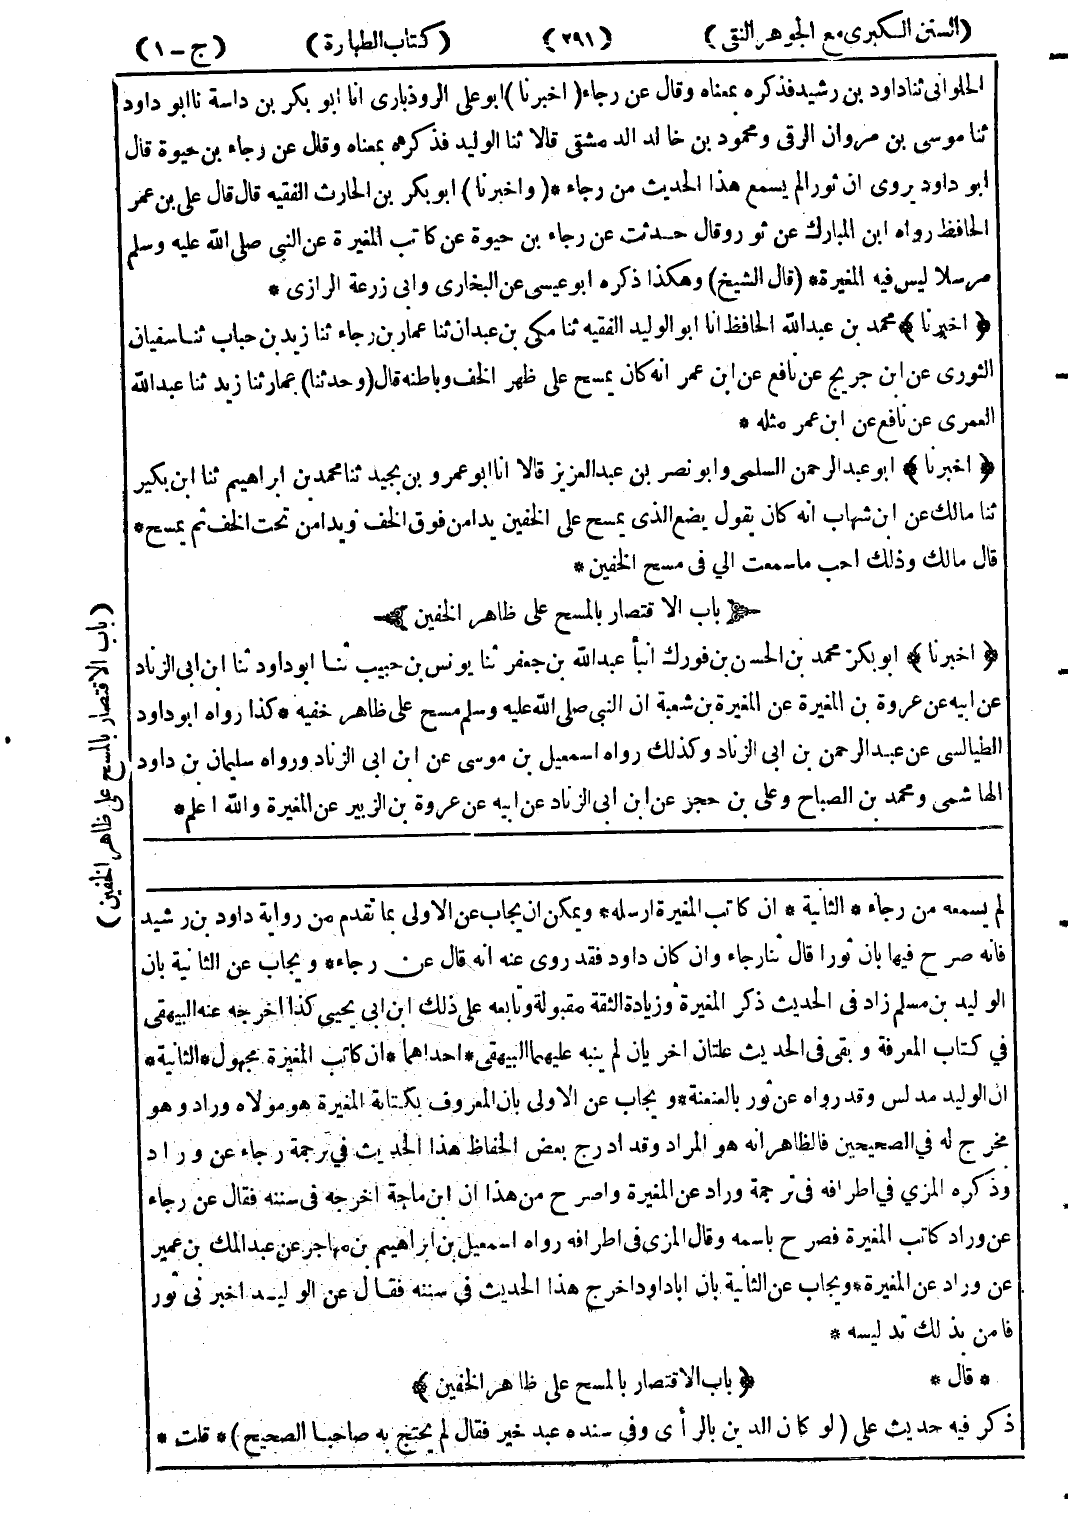 (السنن الكبرى مع الجوهر النقى) (٢٩١) (كتاب الطهارة) (ج - ١)
الحلوانى ثنا داود بن رشيد فذكره بمعناه وقال عن رجاء (اخبرنا) ابو على الروذبارى انا ابو بكر بن داسة نا ابو داود
ثنا موسى بن مروان الرقى ومحمود بن خالد الدمشقى قالا ثنا الوليد فذكره بمعناه وقال عن رجاء بن حيوة قال
ابو داود يروى ان ثورا لم يسمع هذا الحديث من رجاء * (واخبرنا) ابو بكر بن الحارث الفقيه قال قال على بن عمر
الحافظ رواه ابن المبارك عن ثور وقال حدثت عن رجاء بن حيوة عن كاتب المغيرة عن النبى صلى الله عليه وسلم
مرسلا ليس فيه المغيرة * (قال الشيخ) وهكذا ذكره ابو عيسى عن البخارى وابى زرعة الرازى *
﴿ اخبرنا ﴾ محمد بن عبدالله الحافظ انا ابو الوليد الفقيه ثنا مكى بن عبدان ثنا عمار بن رجاء ثنا زيد بن حباب ثنا سفيان
الثورى عن ابن جريج عن نافع عن ابن عمر انه كان يمسح على ظهر الخف وباطنه قال (وحدثنا) عمار ثنا زيد ثنا عبدالله
العمرى عن نافع عن ابن عمر مثله *
﴿ اخبرنا ﴾ ابو عبدالرحمن السلمى وابو نصر بن عبدالعزيز قالا انا ابو عمرو بن بجيد ثنا محمد بن ابراهيم ثنا ابن بكير
ثنا مالك عن ابن شهاب انه كان يقول يضع الذى يمسح على الخفين يدا من فوق الخف ويدا من تحت الخف ثم يمسح *
قال مالك وذلك احب ما سمعت الي فى مسح الخفين *
﴿ باب الاقتصار بالمسح على ظاهر الخفين ﴾
﴿ اخبرنا ﴾ ابو بكر محمد بن الحسن بن فورك انبأ عبدالله بن جعفر ثنا يونس بن حبيب ثنا ابو داود ثنا ابن ابى الزناد
عن ابيه عن عروة بن المغيرة عن المغيرة بن شعبة ان النبى صلى الله عليه وسلم مسح على ظاهر خفيه * كذا رواه ابو داود
الطيالسى عن عبدالرحمن بن ابى الزناد وكذلك رواه اسمعيل بن موسى عن ابن ابى الزناد ورواه سليمان بن داود
الهاشمى ومحمد بن الصباح وعلى بن حجر عن ابن ابى الزناد عن ابيه عن عروة بن الزبير عن المغيرة والله اعلم *
(باب الاقتصار بالمسح على ظاهر الخفين)
لم يسمعه من رجاء * الثانية * ان كاتب المغيرة ارسله * ويمكن ان يجاب عن الاولى بما تقدم من رواية داود بن رشيد
فانه صرح فيها بان ثورا قال ثنا رجاء وان كان داود فقد روى عنه انه قال عن رجاء * ويجاب عن الثانية بان
الوليد بن مسلم زاد فى الحديث ذكر المغيرة وزيادة الثقة مقبولة وتابعه على ذلك ابن ابى يحيى كذا اخرجه عنه البيهقى
في كتاب المعرفة وبقى فى الحديث علتان اخريان لم ينبه عليهما البيهقى * احداهما * ان كاتب المغيرة مجهول * الثانية *
ان الوليد مدلس وقد رواه عن ثور بالعنعنة * ويجاب عن الاولى بان المعروف بكتابة المغيرة هو مولاه وراد وهو
مخرج له في الصحيحين فالظاهر انه هو المراد وقد ادرج بعض الحفاظ هذا الحديث في ترجمة رجاء عن وراد
وذكره المزي في اطرافه فى ترجمة وراد عن المغيرة واصرح من هذا ان ابن ماجة اخرجه فى سننه فقال عن رجاء
عن وراد كاتب المغيرة فصرح باسمه وقال المزى فى اطرافه رواه اسمعيل بن ابراهيم بن مهاجر عن عبدالملك بن عمير
عن وراد عن المغيرة * ويجاب عن الثانية بان ابا داود اخرج هذا الحديث في سننه فقال عن الوليد اخبرنى ثور
فامن بذلك تدليسه *
* قال * ﴿ باب الاقتصار بالمسح على ظاهر الخفين ﴾
ذكر فيه حديث على (لو كان الدين بالرأى وفى سنده عبد خير فقال لم يحتج به صاحبا الصحيح) * قلت *